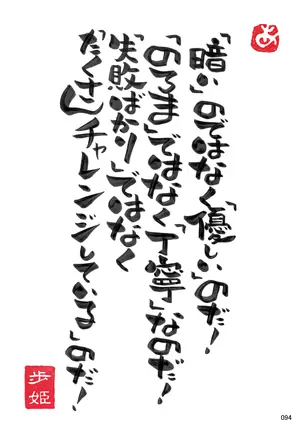 あ
「暗い」のではなく「優しい」のだ!
「のろま」ではなく「丁寧」なのだ!
「失敗ばかり」ではなく
「たくさんチャレンジしている」のだ!
歩姫
094